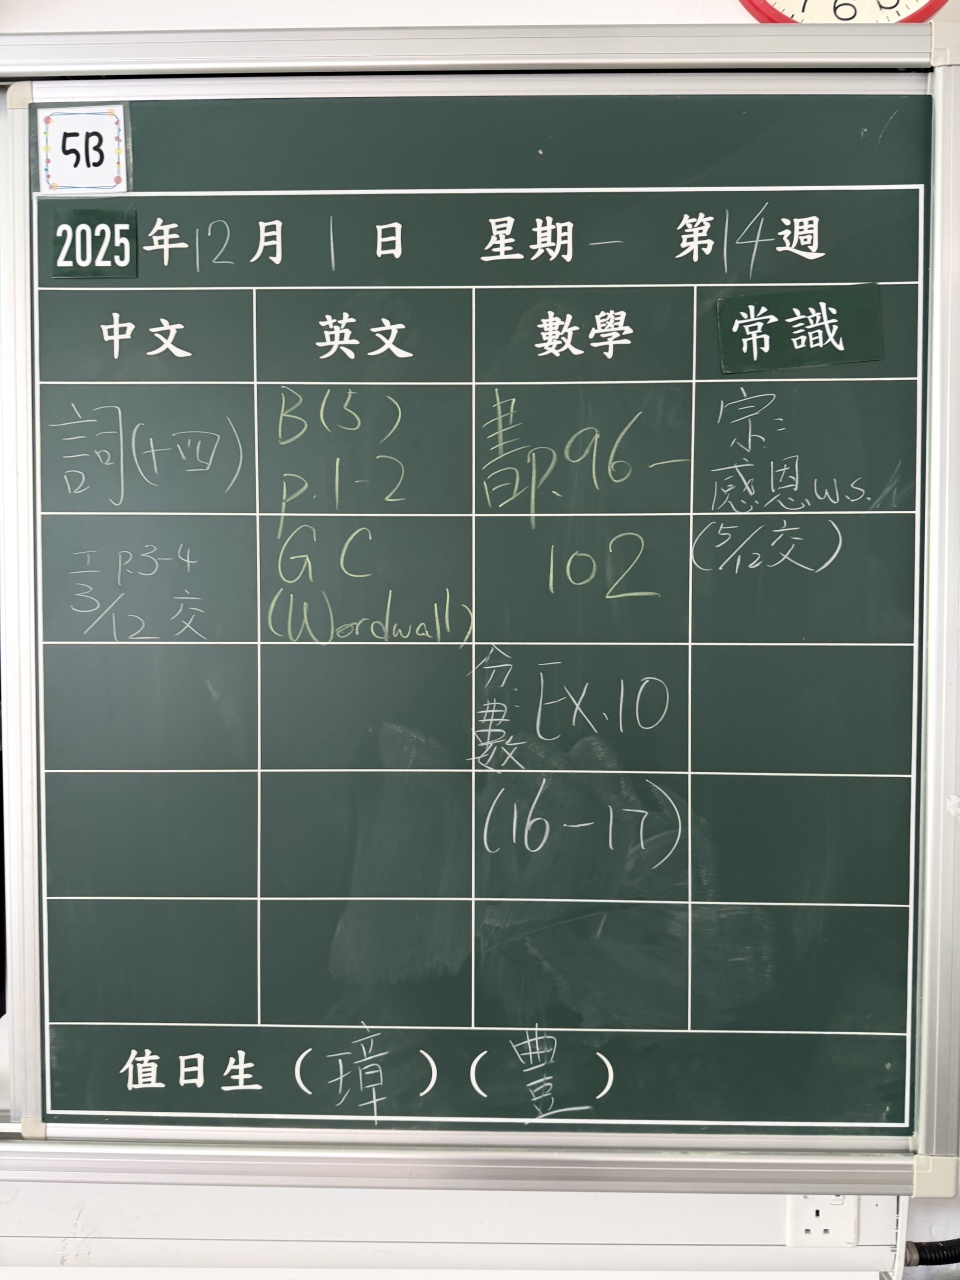 5B
2025年12月1日 星期一 第14週
中文 英文 數學 常識
詞(十四)
工 P.3-4
3/12 交
B(5)
p.1-2
GC
(Wordwall)
書P.96-
102
分數 Ex.10
(16-17)
宗:
感恩w.s.
(5/12交)
值日生(璋)(豊)
7 6 5